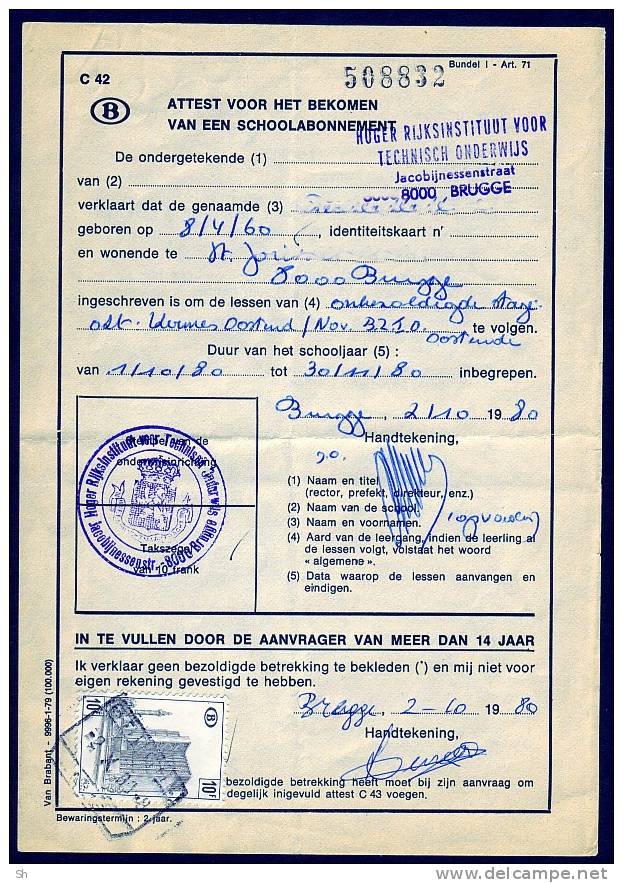 Bundel I - Art. 71
C 42
508832
B
ATTEST VOOR HET BEKOMEN
VAN EEN SCHOOLABONNEMENT
HOGER RIJKSINSTITUUT VOOR
TECHNISCH ONDERWIJS
Jacobijnessenstraat
8000 BRUGGE
De ondergetekende (1)
van (2)
verklaart dat de genaamde (3)
geboren op 8/4/60, identiteitskaart n'
en wonende te St. Joris
8000 Brugge
ingeschreven is om de lessen van (4) onbezoldigde stage
Oostend / Nov. te volgen.
Oostende
Duur van het schooljaar (5) :
van 1/10/80 tot 30/11/80 inbegrepen.
Brugge, 2/10 1980
Handtekening,
Stempel van de
onderwijsinrichting
Hoger Rijksinstituut voor Technisch Onderwijs
Jacobijnessenstr. - 8000 Brugge
Takszegel
van 10 frank
(1) Naam en titel
(rector, prefekt, direkteur, enz.)
(2) Naam van de school.
(3) Naam en voornamen.
(opvoeder)
(4) Aard van de leergang, indien de leerling al
de lessen volgt, volstaat het woord
« algemene ».
(5) Data waarop de lessen aanvangen en
eindigen.
IN TE VULLEN DOOR DE AANVRAGER VAN MEER DAN 14 JAAR
Ik verklaar geen bezoldigde betrekking te bekleden (*) en mij niet voor
eigen rekening gevestigd te hebben.
Brugge, 2-10 1980
Handtekening,
10F
B
10F
bezoldigde betrekking heeft moet bij zijn aanvraag om
degelijk ingevuld attest C 43 voegen.
Bewaringstermijn : 2 jaar.
Van Brabant - 9996-1-79 (100.000)
Sh
delcampe.net